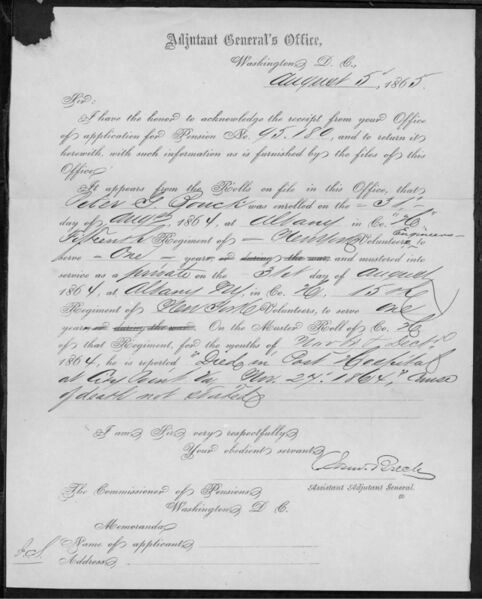 Adjutant General's Office,
Washington, D. C.,
August 5, 1865.
Sir:
I have the honor to acknowledge the receipt from your Office
of application for Pension No. 95.180, and to return it
herewith, with such information as is furnished by the files of this
Office.
It appears from the Rolls on file in this Office, that
Peter G. Bouck was enrolled on the 31st
day of Augt, 1864, at Albany in Co. "H"
Fifteenth Regiment of New York Volunteers, to
Engineers
serve One years, and during the war, and mustered into
service as a private on the 31st day of August
1864, at Albany NY, in Co. H. 15th
Regiment of New York Volunteers, to serve one
years and during the war. On the Muster Roll of Co. H
of that Regiment, for the months of Nov & Dec,
1864, he is reported "Died in Post Hospital
at City Point Va, Nov. 27, 1864," Cause
of death not stated
I am Sir, very respectfully,
Your obedient servant,
Saml Breck
Assistant Adjutant General.
The Commissioner of Pensions,
Washington, D. C.
Memoranda.
Name of applicant,
Address,